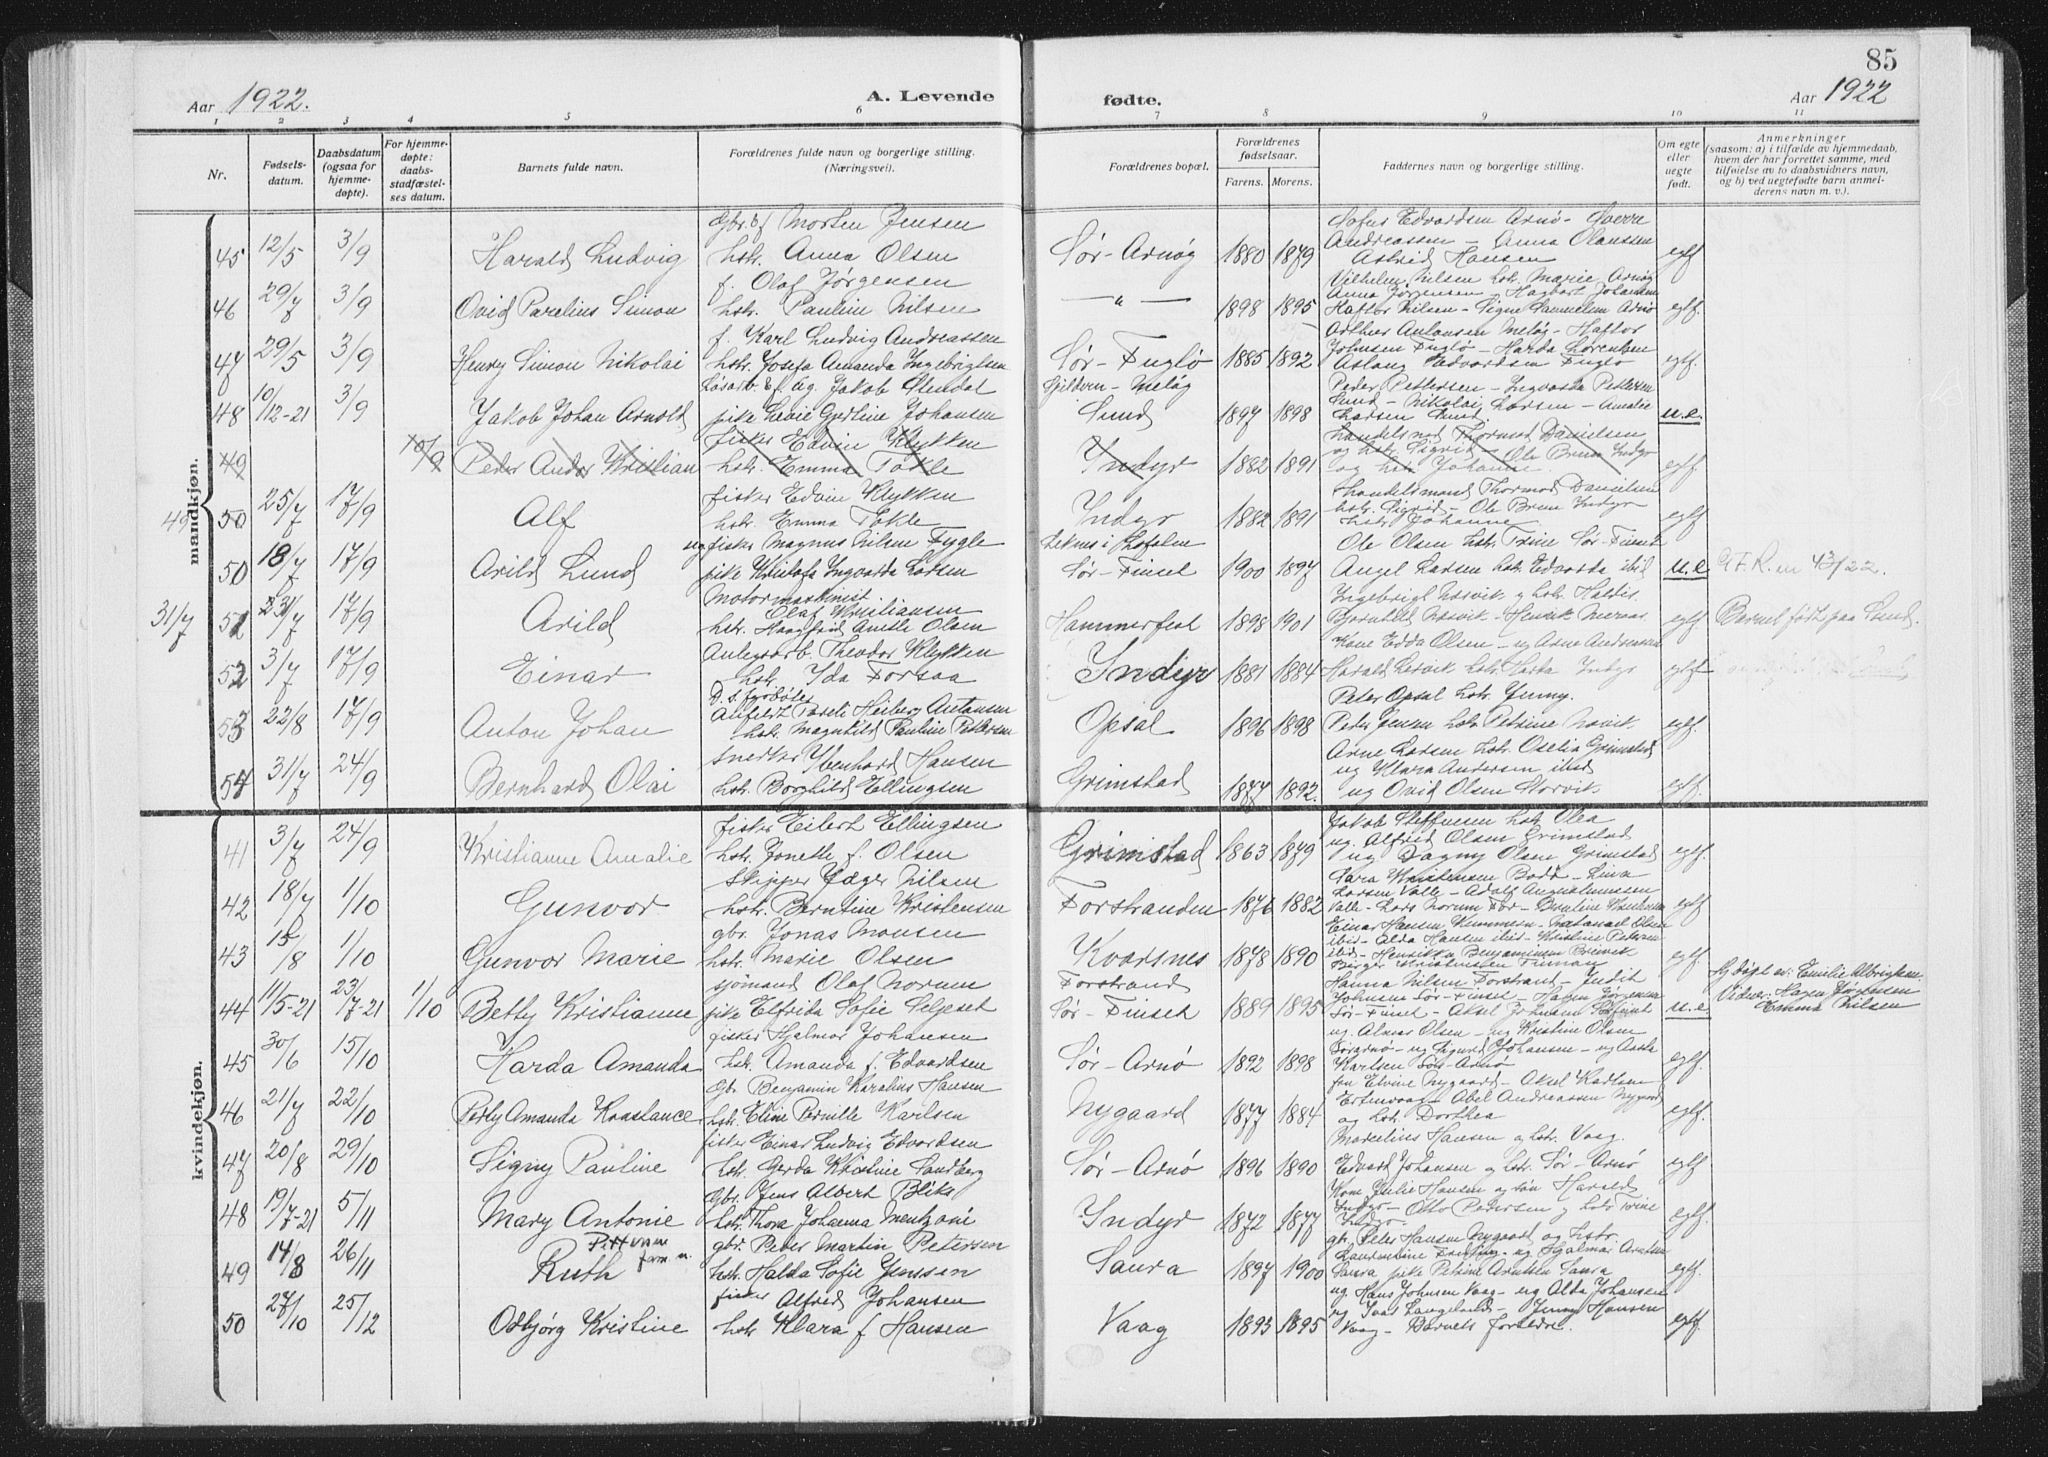 85
Aar 1922. A. Levende fødte. Aar 1922
1 2 3 4 5 6 7 8 9 10 11
Nr. Fødsels-datum. Daabsdatum (ogsaa for hjemme-døpte). For hjemme-døpte: daabs-stadfæstel-ses datum. Barnets fulde navn. Forældrenes fulde navn og borgerlige stilling. (Næringsvei). Forældrenes bopæl. Forældrenes fødselsaar. Farens. Morens. Faddernes navn og borgerlige stilling. Om egte eller uegte født. Anmerkninger (saasom: a) i tilfælde av hjemmedaab, hvem der har forrettet samme, med tilføielse av to daabsvidners navn, og b) ved uegtefødte barn anmel-derens navn m. v.).
mandkjøn.
45 12/5 3/9 Harald Ludvig Gbr. & f Morten Jensen hstr. Anna Olsen Sør-Arnøy 1880 1879 Sofus Edvardsen Arnø - Sverre Andreassen - Anna Olaussen Astrid Hansen egtf
46 29/7 3/9 Ovid Parelius Simon f. Olaf Jørgensen hstr. Pauline Nilsen — " — 1898 1895 Vilhelm Nilsen hstr. Marie Arnøy Anna Jørgensen - Hagbart Johansen Haftor Nilsen - Signe Samuelsen Arnø egtf.
47 29/5 3/9 Henry Simon Nikolai f. Karl Ludvig Andreassen hstr. Josefa Amanda Ingebrigtsen Sør-Fuglø 1885 1892 Antonsen Meløy - Haftor Johnsen Fuglø - Harda Lorentzen Aslaug Edvardsen Fuglø egtf.
48 10/12-21 3/9 Jakob Johan Arnold Løsarb. & f. ug. Jakob Stendal pike Levie Gurline Johansen Gjelderen - Meløy Sund 1897 1898 Peder Pettersen - Ingvarda Pettersen Sund - Nikolai Larsen - Amalie Larsen Sund u.e.
49 10/9 Peder Andor Kristian fisker Edvin Klykken hstr. Emma Tokle Indyr 1882 1891 handelsmd Thormod Danielsen og hstr Sigrid - Ole Bruun Indyr og hstr Johanne egtf
49 50 25/7 17/9 Alf fisker Edvin Klykken hstr. Emma Tokle Indyr 1882 1891 Handelsmand Thormod Danielsen hstr. Sigrid - Ole Bruun Indyr hstr Johanne egtf
50 18/7 17/9 Arild Lund ug fisker Magnus Nilsen Fygle pike Kristofa Ingvarda Larsen Leknes i Lofoten Sør-Finset 1900 1897 Ole Olsen hstr. Trine Sør-Finset Angel Larsen hstr. Edvarda ibid u.e G.F.R. nr 43/22.
31/7 51 23/7 17/9 Arild Motormaskinist Olaf Kristiansen hstr. Haagfrid Anette Olsen Hammerfest 1898 1901 Ingebrigt Næsvik og hstr. Haldis Bjornhild Næsvik - Henrik Meraas egtf. Barnet født paa Sund.
52 3/7 17/9 Einar Anlægsarb. Theodor Klykken hstr. Ida Forsaa Indyr 1881 1884 Kone Edda Olsen - ug Arne Andreassen Harald Løsvik hstr. Herta Indyr egtf
53 22/8 17/9 Anton Johan D.s. fyrbøter Alfeldt Torsti Heiberg Antonsen hstr. Magnhild Pauline Pettersen Opsal 1896 1898 Peter Opsal hstr. Jenny. Peder Jensen hstr Petrine Norvik egtf.
54 31/7 24/9 Bernhard Olai snedker Ybenhard Hansen hstr. Borghild Ellingsen Grimstad 1877 1892. Arne Larsen hstr. Oselia Grimstad ug Klara Andersen ibid ug Ovid Olsen Storvik. egtf.
kvindekjøn.
41 3/7 24/9 Kristianne Amalie fisker Eilert Ellingsen hstr. Jonette f. Olsen Grimstad 1863 1879 Jakob Steffensen hstr Olea ug. Alfred Olsen Grimstad ug Dagny Olsen Grimstad egtf.
42 18/7 1/10 Gunvor Skipper Jæger Nilsen hstr. Berntine Kristensen Forstranden 1876 1882 Sara Kristensen Bodø - Lina Larsen Valle - Adolf Valle - Lars Norum Før - Berntine Kristensen egtf
43 15/8 1/10 Gunvor Marie gbr. Jonas Monsen hstr. Marie Olsen Kvarsnes 1878 1890 Einar Hansen - Natanael Olsen ibid - Alda Hansen ibid - Kristine Petersen ibid - Henrikka Benjaminsen Breivik egtf.
44 11/5-21 23/7-21 1/10 Betty Kristianne sjømand Olaf Norum pike Elfrida Sofie Selfeset Forstrand Sør-Finset 1889 1895 Birger Kristensen Hanna Nilsen Forstrand - Judit Johnsen Sør-Finset - Hagen Jørgensen Sør-Finset - Aksel Johnsen u.e. Hj.døpt av: Emilie Albrigtsen Vidner: Hagen Jørgensen Emma Nilsen
45 30/6 15/10 Harda Amanda fisker Hjalmar Johansen hstr. Amanda f. Edvardsen Sør-Arnø 1892 1898 ug. Almar Olsen - ug Kristine Olsen Sørarnø - ug Sigurd Johansen - ug Aasta Karlsen Sør-Arnø egtf.
46 21/7 22/10 Perly Amanda Konstance Gbr. Benjamin Karelius Hansen hstr. Eline Pernille Karlsen Nygaard 1877 1884 frn Elvine Nygaard - Aksel Karlsen Ertenvaag - Abel Andreassen Nygaard og hstr. Dorthea egtf.
47 20/8 29/10 Signy Pauline fisker Einar Ludvig Edvardsen hstr. Gerda Kristine Sandberg Sør-Arnø 1896 1890 Marcelius Hansen og hstr. Vaag. Edvart Johansen og hstr. Sør-Arnø egtf
48 19/7-21 5/11 Mary Antonie Gbr. Jens Albert Bliks hstr. Thora Johanna Mentzoni Indyr 1872 1877 Kone Julie Hansen og søn Harald Indyr - Otto Petersen og hstr Trine Indyr. egtf.
49 14/8 26/11 Ruth gbr. Peder Martin Petersen hstr. Halda Sofie Jensen Saura 1897 1900 gbr Peter Hansen Nygaard og hstr. Laurentine - ug Hjalmar Arntsen Saura pike Petrine Arntsen Saura egtf.
50 27/10 25/12 Odbjørg Kristine fisker Alfred Johansen hstr Klara f Hansen Vaag 1893 1895 ug. Hans Johnsen Vaag - ug Alda Johansen ug Isak Langeland - Jenny Hansen Vaag - Barnets forældre. egtf.